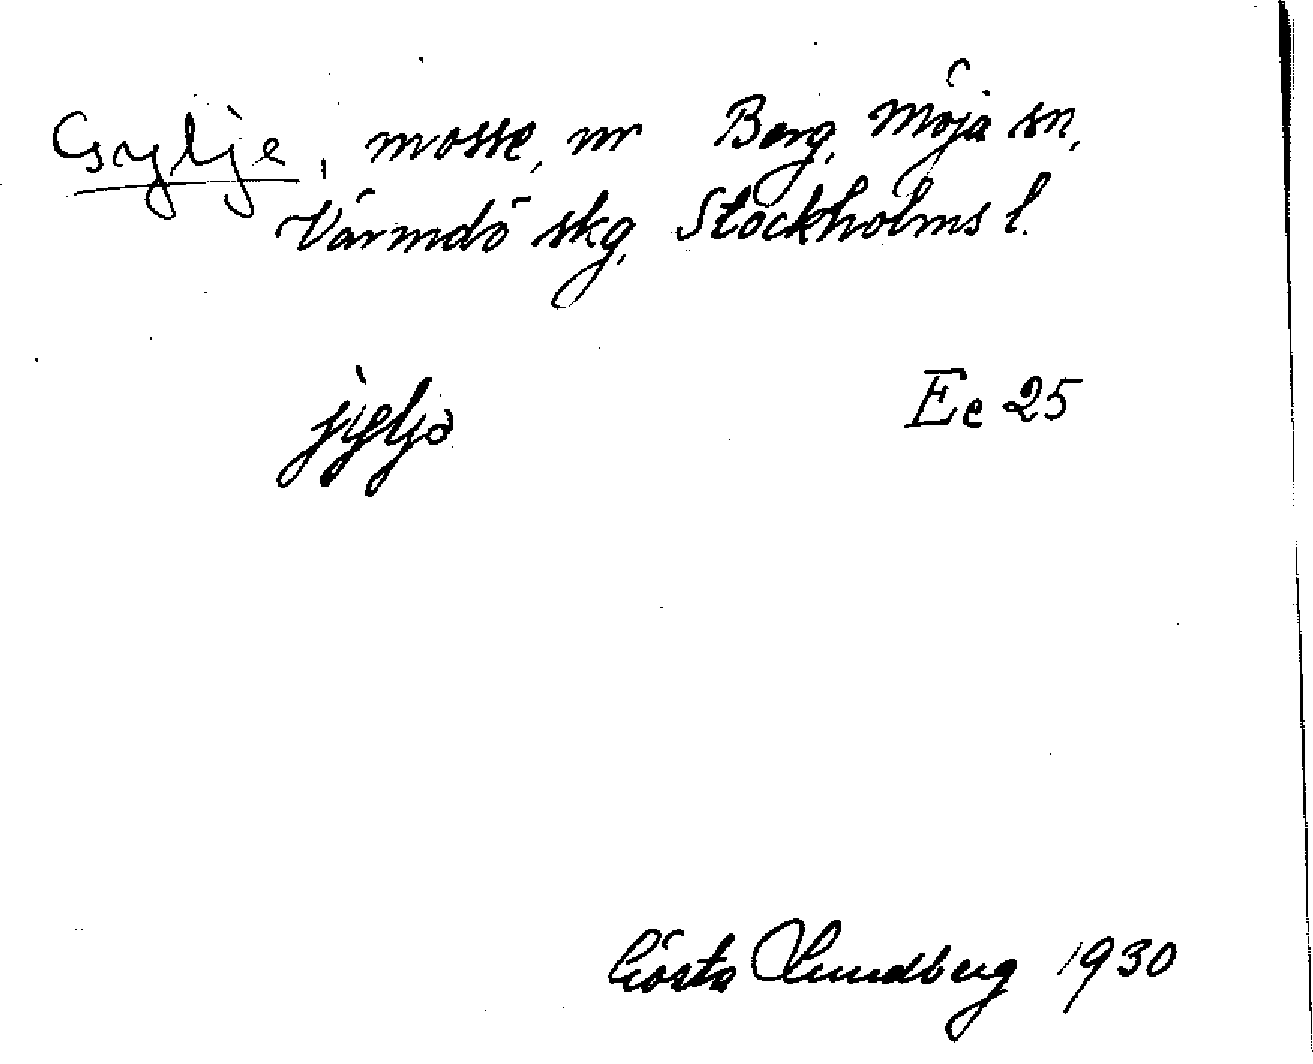 Gylje, mosse, nr Berg, Möja sn,
Värmdö skg, Stockholms l.
jyljə Ee 25
Gösta Lundberg 1930